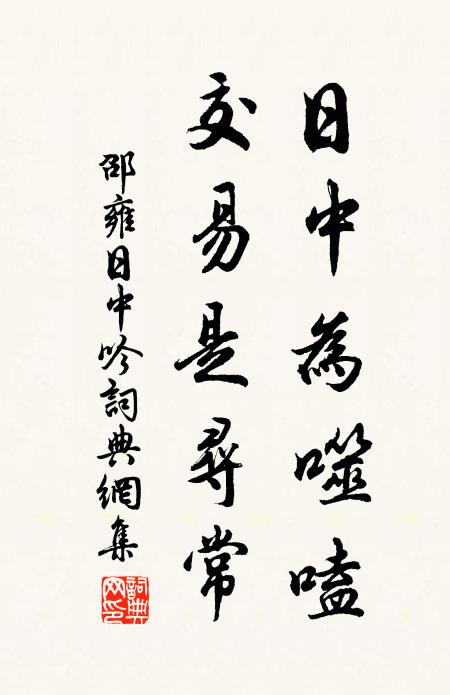 日中為噬嗑
交易是尋常
邵雍日中吟詞典網集
詞典網印